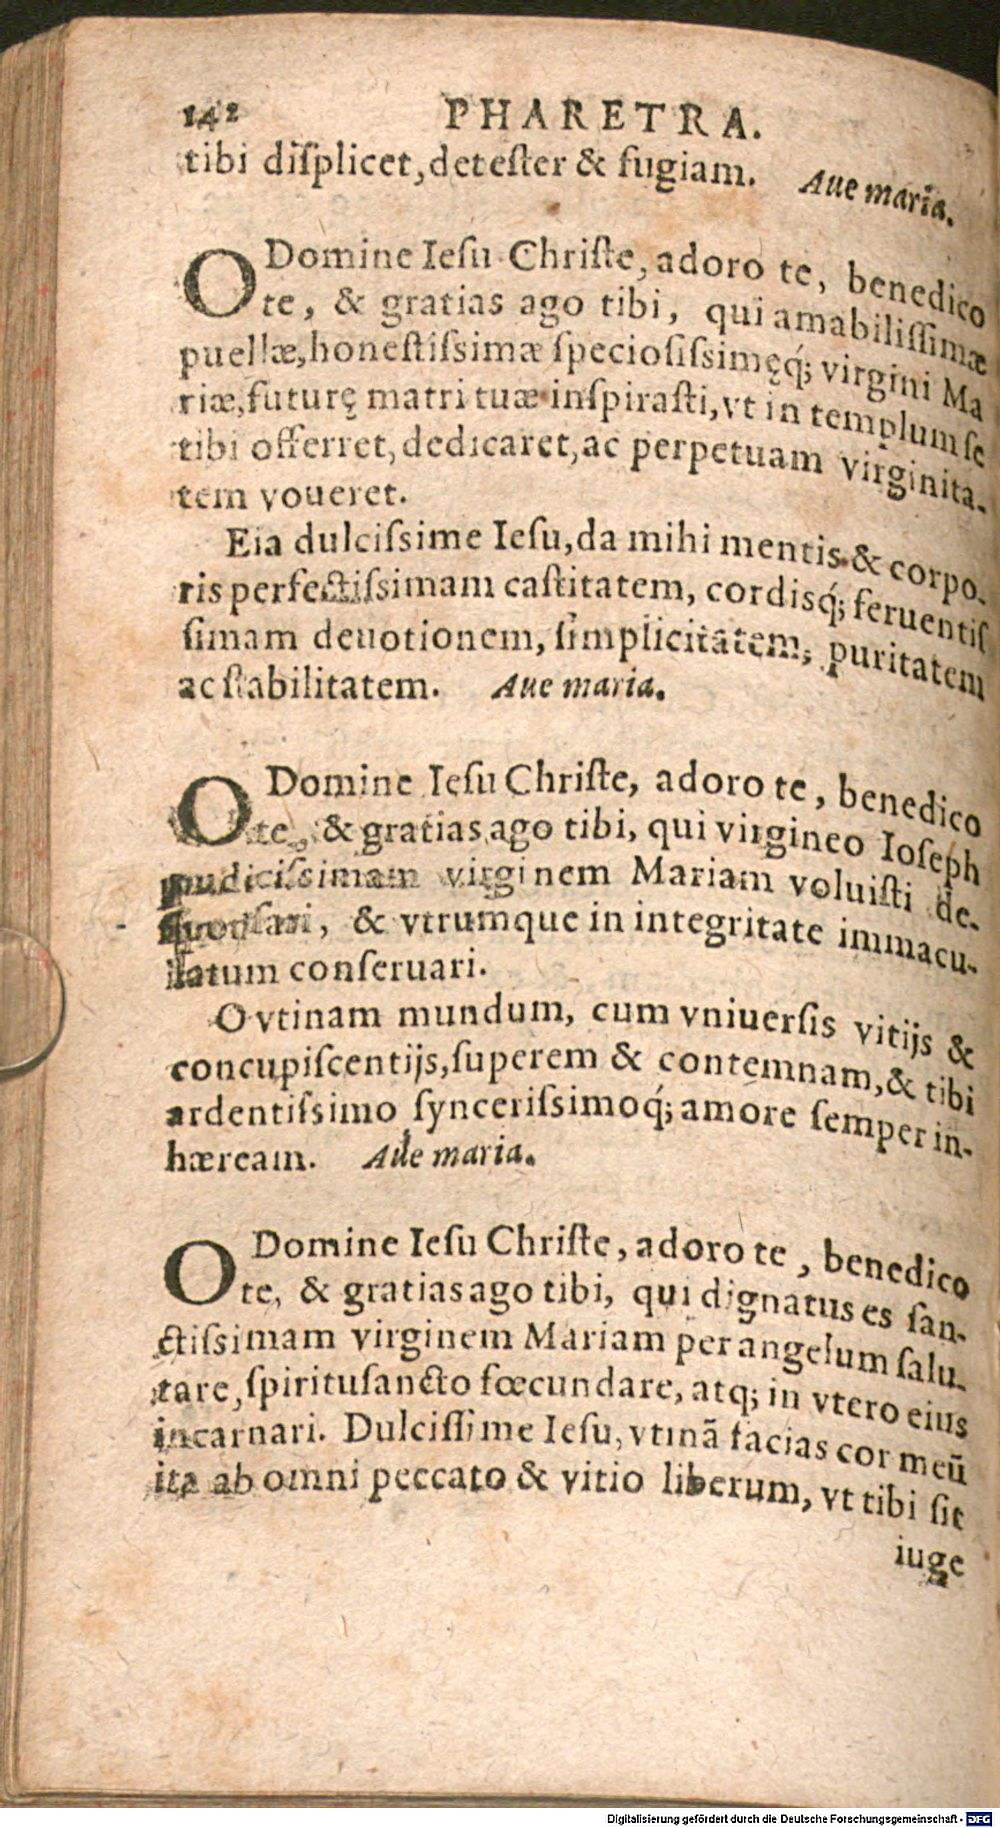 142 PHARETRA.
tibi diſplicet, deteſter & fugiam. Aue maria.
O Domine Ieſu Chriſte, adoro te, benedico
te, & gratias ago tibi, qui amabiliſſimæ
puellæ, honeſtiſsimæ ſpecioſiſsimęq́; virgini Ma
riæ, futurę matri tuæ inſpiraſti, vt in templum ſe
tibi offerret, dedicaret, ac perpetuam virginita-
tem voueret.
Eia dulciſsime Ieſu, da mihi mentis & corpo-
ris perfectiſsimam caſtitatem, cordisq́; feruentiſ
ſimam deuotionem, ſimplicitatem, puritatem
ac ſtabilitatem. Aue maria.
O Domine Ieſu Chriſte, adoro te, benedico
te, & gratias ago tibi, qui virgineo Ioſeph
pudiciſsimam virginem Mariam voluiſti de-
ſponſari, & vtrumque in integritate immacu-
latum conſeruari.
O vtinam mundum, cum vniuerſis vitijs &
concupiſcentijs, ſuperem & contemnam, & tibi
ardentiſsimo ſynceriſsimoq́; amore ſemper in-
hæream. Aue maria.
O Domine Ieſu Chriſte, adoro te, benedico
te, & gratias ago tibi, qui dignatus es ſan-
ctiſsimam virginem Mariam per angelum ſalu-
tare, ſpirituſancto fœcundare, atq; in vtero eius
incarnari. Dulciſſime Ieſu, vtinã facias cor meũ
ita ab omni peccato & vitio liberum, vt tibi ſit
iuge
Digitalisierung gefördert durch die Deutsche Forschungsgemeinschaft - DFG